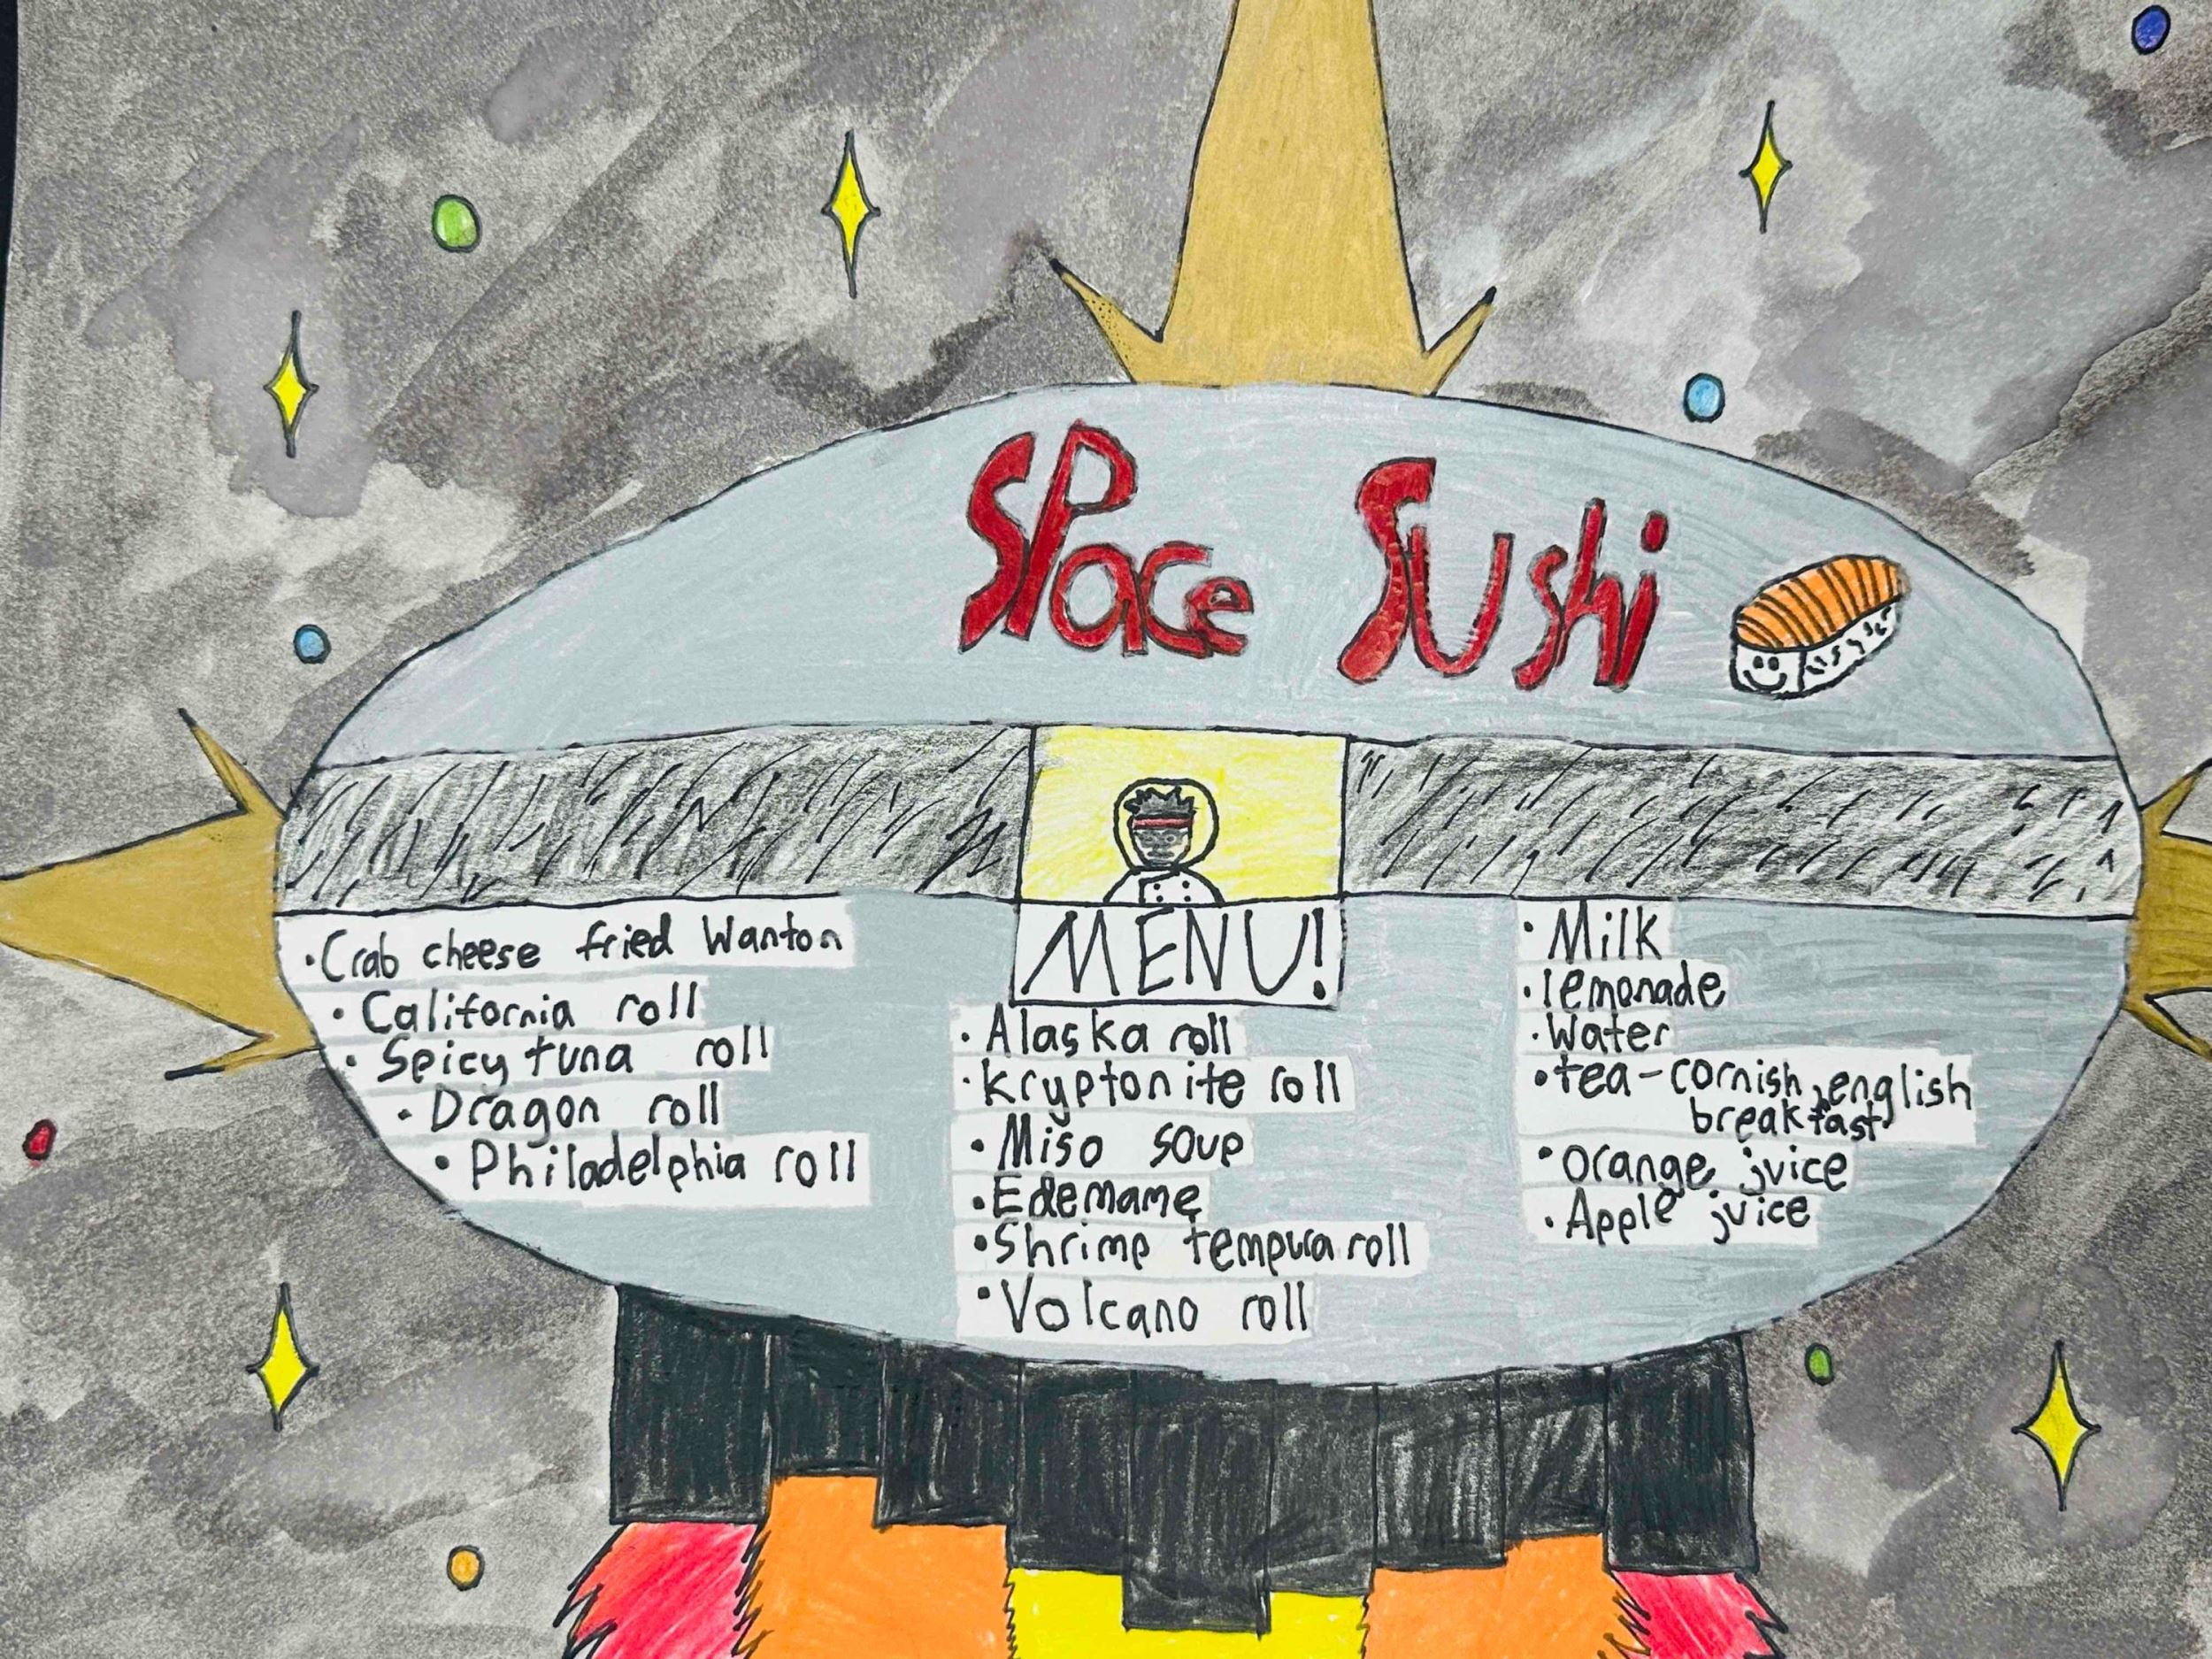 SPace Sushi
MENU!
• Crab cheese fried Wanton
• California roll
• Spicy tuna roll
• Dragon roll
• Philadelphia roll
• Alaska roll
• kryptonite roll
• Miso soup
• Edemame
• Shrimp tempura roll
• Volcano roll
• Milk
• lemonade
• Water
• tea-cornish, english
breakfast
• Orange juice
• Apple juice